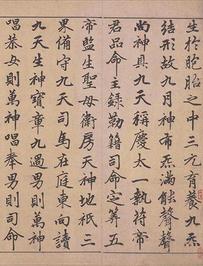 生於胞胎之中三元育養九炁
結形故九月神布炁滿能聲聲
尚神具九天稱慶太一執符帝
君品命主錄勒籍司命定筭五
帝監生聖母衛房天神地祇三
界備守九天司馬在庭東向讀
九天生神寶章九過男則萬神
唱恭女則萬神唱奉男則司命